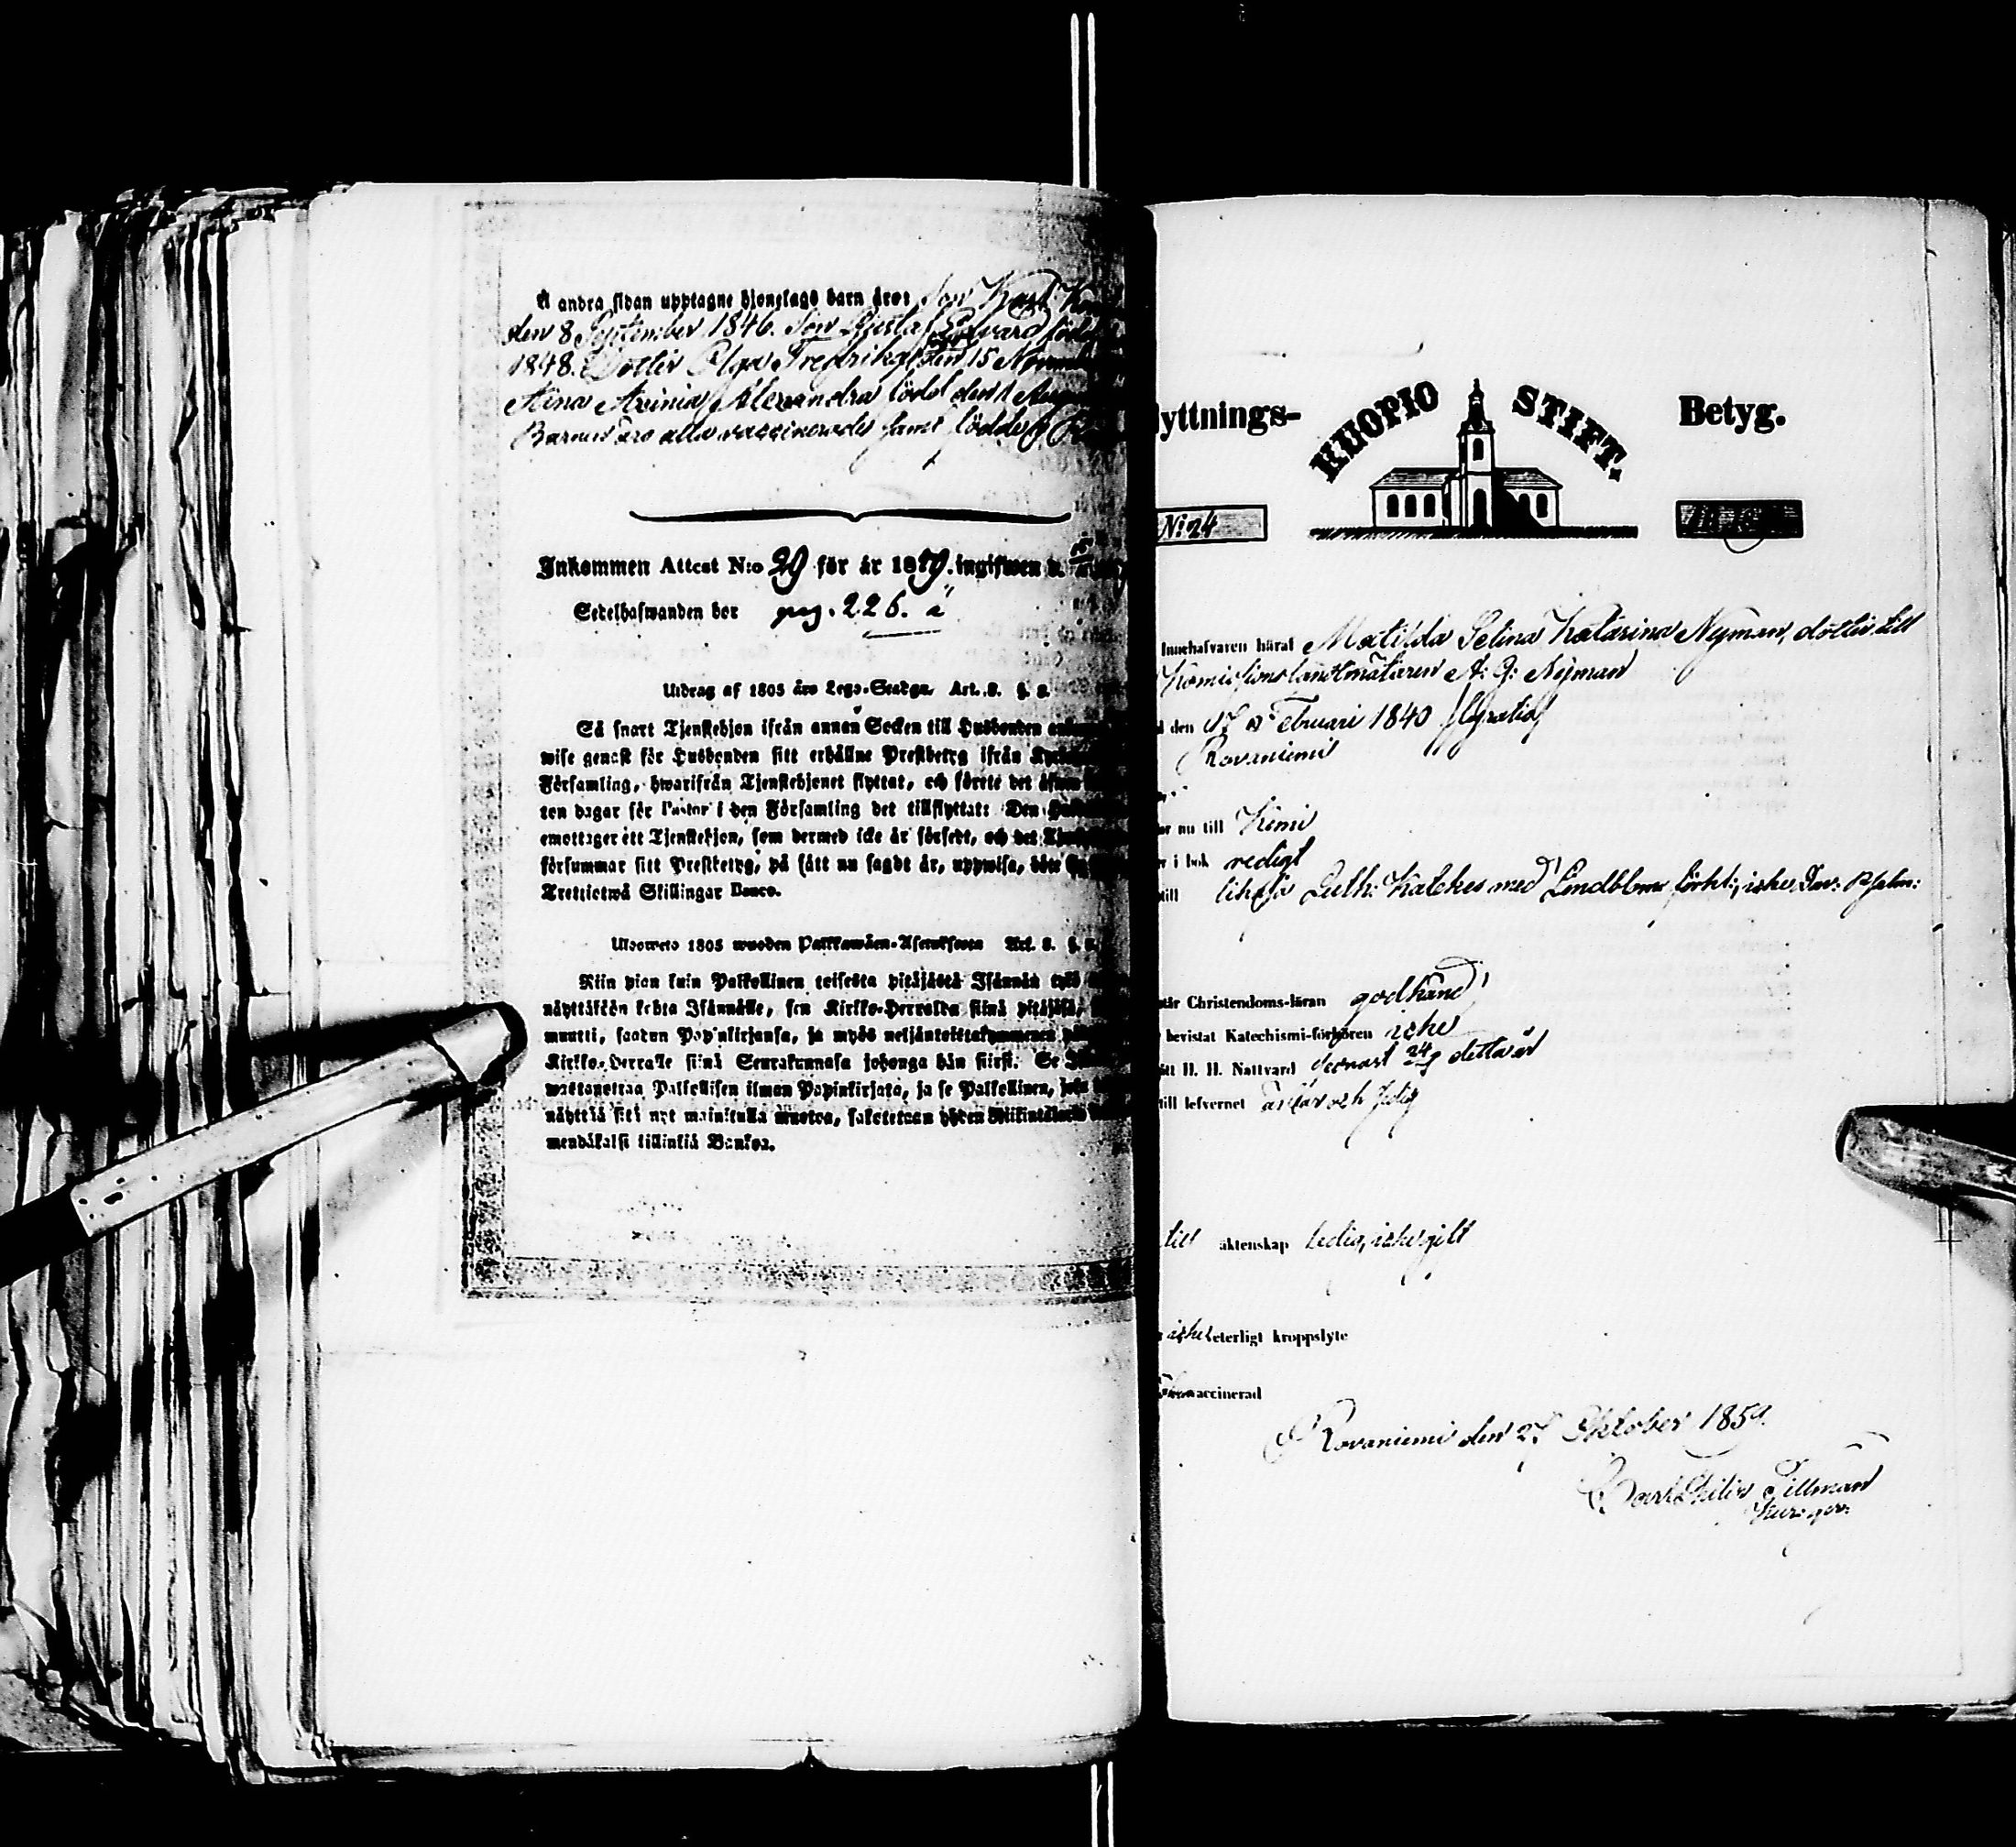 å andra sidan upptagne hjonelags barn äro: Son Karl
den 8 September 1846. Son Gustaf Edvard född
1848. Dotter Olga Fredrika född den 15 Novemb
Aina Alexandra född den 1
Barnen äro alla vaccinerade samt födde
Inkommen Attest N:o 29 för år 1859. ingifwen d.
Sedelhafwanden bor pag. 226. ä
Utdrag af 1805 års Lego-Stadga. Art. 8. §.
Så snart Tjenstehjon ifrån annan Socken till Husbonden
wise genast för Husbonden sitt erhållne Prestbetyg ifrån
Församling, hwarifrån Tjenstehjonet flyttat, och förete det
ton dagar för Pastor i den Församling det tillflyttat: Den
emottager ett Tjenstehjon, som dermed icke är försedt, och det
försummar sitt Prestbetyg, på sätt nu sagdt är, uppwisa, böte
Trettiotwå Skillingar Banco.
Ulosweto 1805 wuoden Palkkawäen-Asetuksesta Art. 8. §.
Niin pian kuin Palkollinen toisesta pitäjästä Isännän työ
näyttäköön kohta Isännälle, sen Kirkko-Herralda siinä pitäjäsä,
muutti, saadun Papinkirjansa, ja myös neljäntoistakymmenen
Kirkko-Herralle siinä Seurakunnasa johonga hän siirsi. Se
wastanottaa Palkollisen ilman Papinkirjata, ja se Palkollinen,
näyttää sitä nyt mainitulla muotoa, sakotetaan
mendäkaksi killinkiä Bankoa.
lyttnings-
KUOPIO STIFT.
Betyg.
N:o 24
Innehafvaren häraf Matilda Selina Katarina Nyman, dotter till
Komissionslandtmätaren A: G: Nyman
d den 17 Februari 1840
Rovaniemi
ar nu till Kemi
r i bok redigt
till likaså Luth: Katches med Lindbloms förkl:, icke Dav: Psalm:
står Christendoms-läran godkänd
bevistat Katechismi-förhören icke
ått H. H. Nattvard senast 24/9 detta år
till lefvernet ärbar och sedig
till äktenskap ledig, icke gift
icke veterligt kroppslyte
vaccinerad
Rovaniemi den 27 Oktober 1859.
Tillman